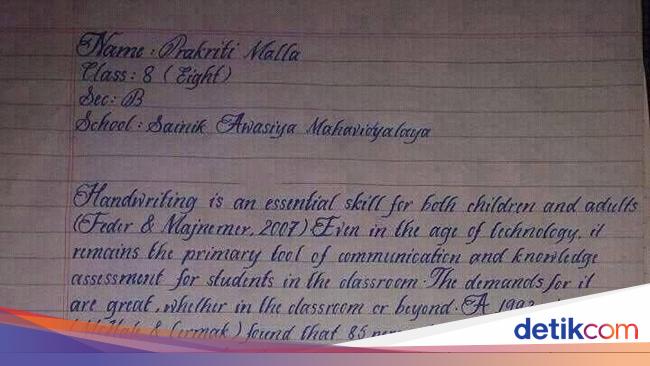 Name : Prakriti Malla
Class : 8 ( Eight )
Sec : B
School : Sainik Awasiya Mahavidyalaya
Handwriting is an essential skill for both children and adults
(Feder & Majnemer, 2007) Even in the age of technology, it
remains the primary tool of communication and knowledge
assessment for students in the classroom. The demands for it
are great, whether in the classroom or beyond. A 1992
& Cermak) found that 85
detikcom